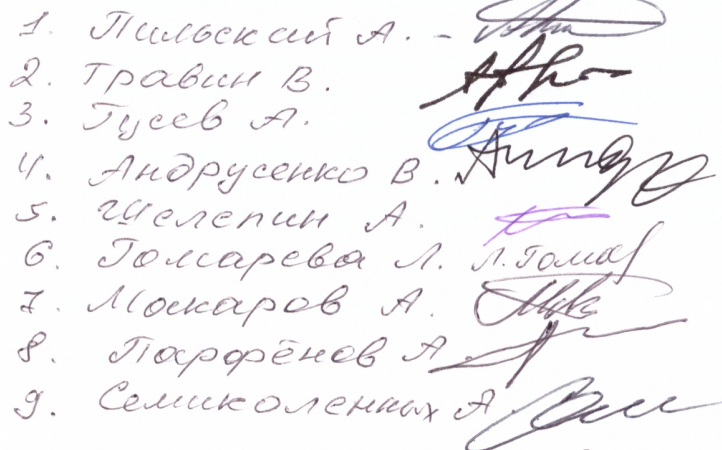 1. Пильский А. -
2. Травин В.
3. Гусев А.
4. Андрусенко В.
5. Шелепин А.
6. Гомарева Л. Л. Гомар
7. Макаров А.
8. Парфёнов А
9. Семиколенных А